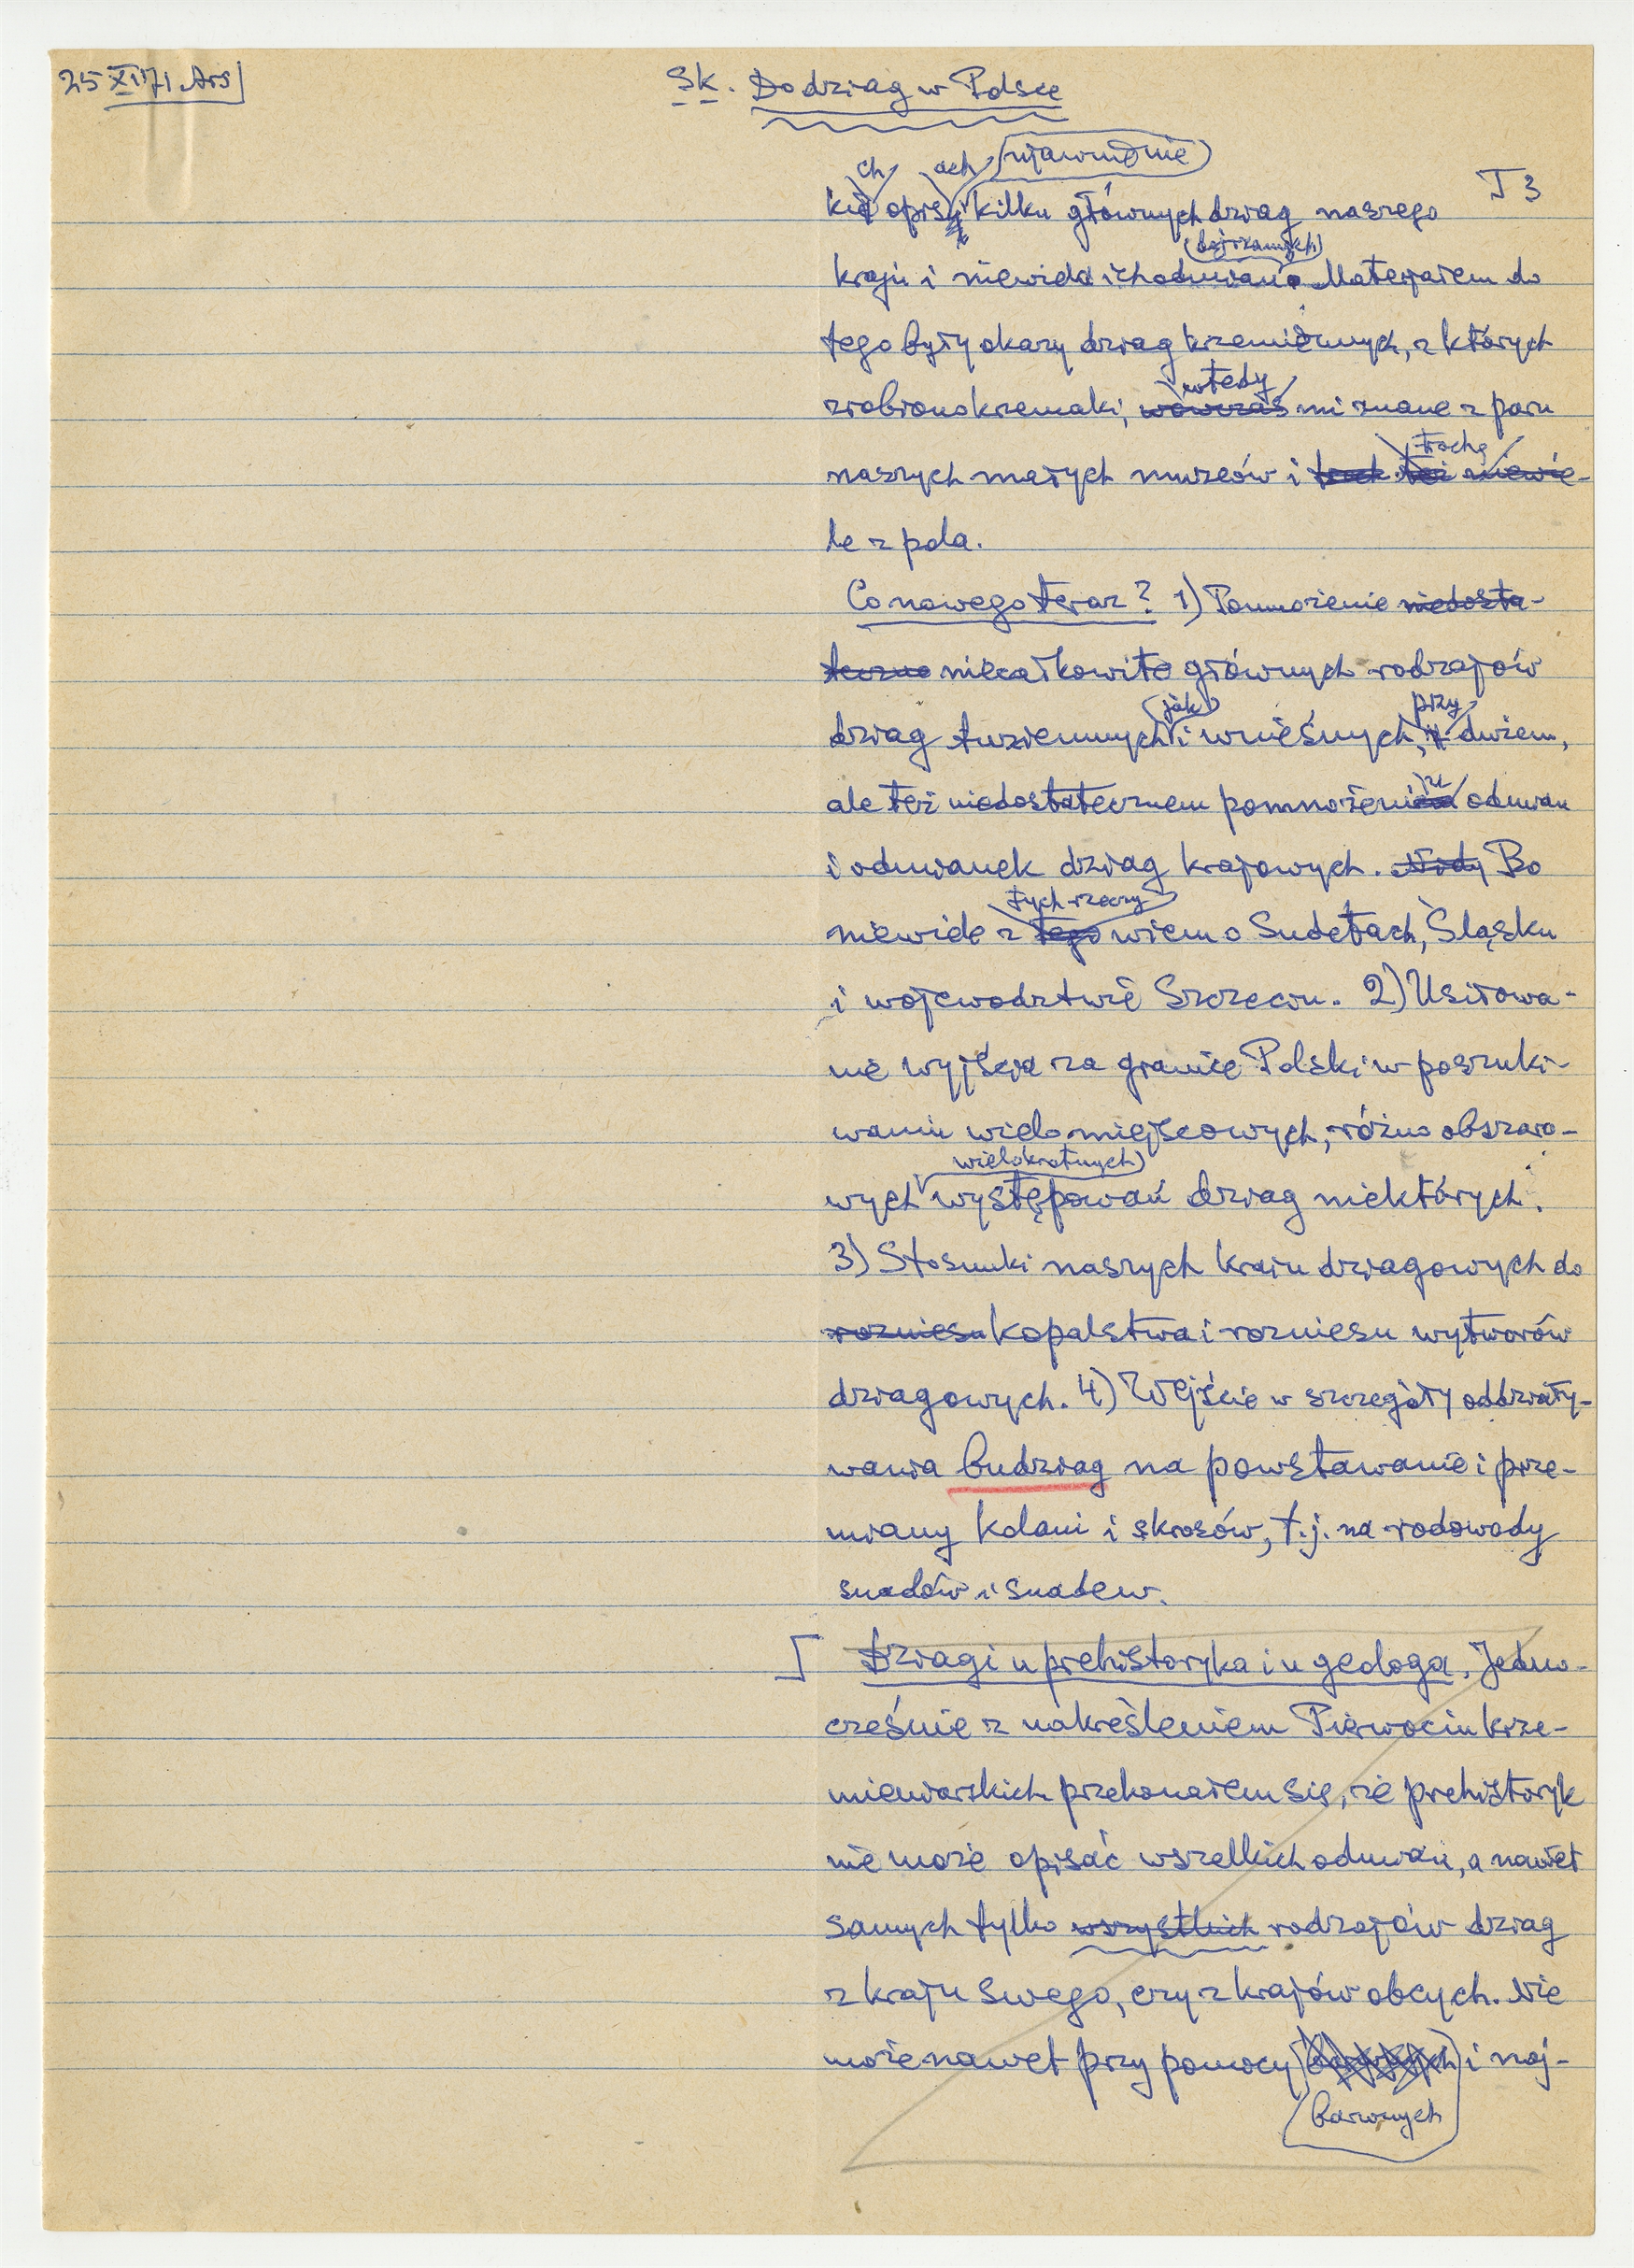 25 XI 71. Ars
Sk. Do dziag w Polsce
ch ach ujawnienie
T 3
kie opisy kilku głównych dziag naszego
dojrzanych
kraju i niewiela ich odmian. Materjałem do
tego były okazy dziag krzemiennych, z których
wtedy
zrobiono krzemaki, wówczas mi znane z paru
trochę
naszych małych muzeów i też niewie-
le z pola.
Co nowego teraz? 1) Pomnożenie niedosta-
teczne niecałkowite głównych rodzajów
jak przy
dziag tuziemnych i wnieśnych, dużem,
iu
ale też niedostatecznem pomnożenia odmian
i odmianek dziag krajowych. Bo
tych rzeczy
niewiele z tego wiem o Sudetach, Śląsku
i wojewodztwie Szczecin. 2) Usiłowa-
nie wyjścia za granice Polski w poszuki-
waniu wielomiejscowych, różno obszaro-
wielokrotnych
wych występowań dziag niektórych.
3) Stosunki naszych krain dziagowych do
rozniesu kopalstwa i rozniesu wytworów
dziagowych. 4) Wejście w szczegóły oddziały-
wania budziag na powstawanie i prze-
miany kolani i skrosów, t.j. na rodowody
snadów i snadew.
Dziagi u prehistoryka i u geologa. Jedno-
cześnie z nakreśleniem Pierwocin krze-
mieniarskich przekonałem się, że prehistoryk
nie może opisać wszelkich odmian, a nawet
samych tylko wszystkich rodzajów dziag
z kraju swego, czy z krajów obcych. Nie
może nawet przy pomocy i naj-
barwnych